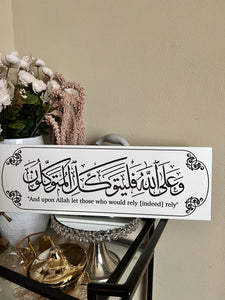 وَعَلَى اللَّهِ فَلْيَتَوَكَّلِ الْمُتَوَكِّلُونَ
"And upon Allah let those who would rely [indeed] rely"